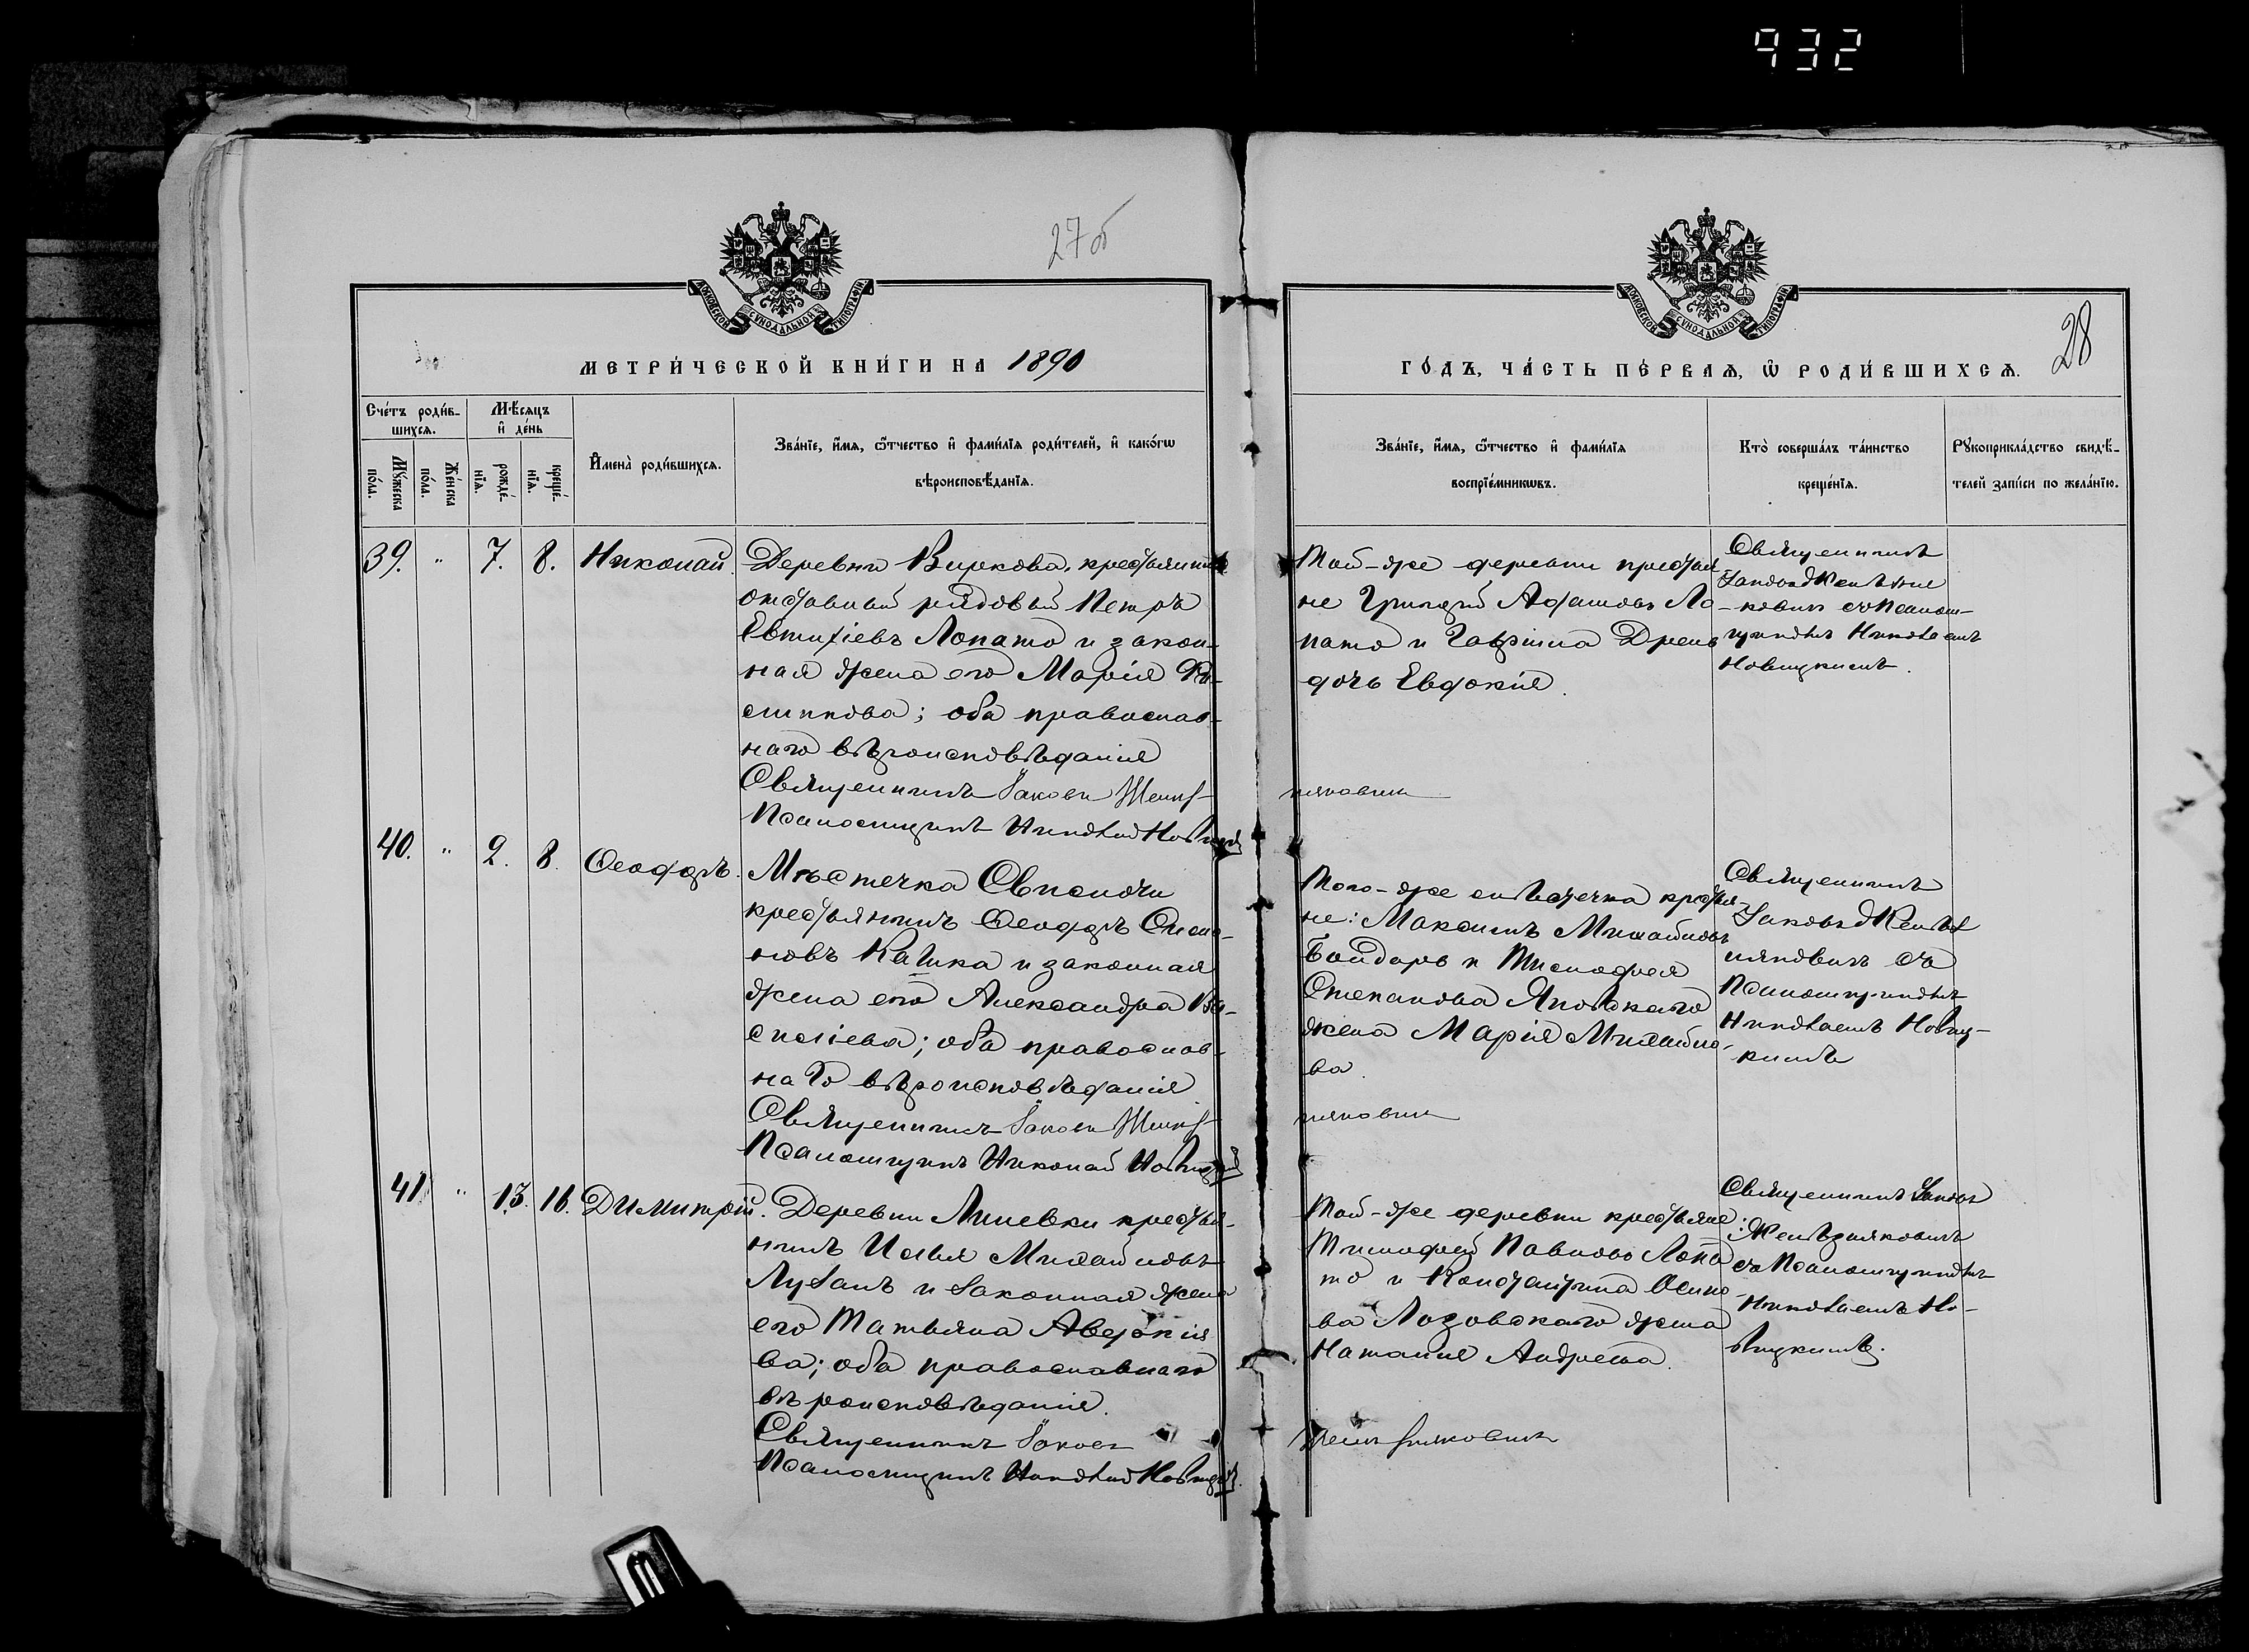 932
27об
28
МОСКОВСКОЙ СУНОДАЛЬНОЙ ТИПОГРАФІИ
МЕТРИ́ЧЕСКОЙ КНИ́ГИ НА 1890
Сче́тъ роди́в-
шихся.
Мѣ́сяцъ
и҆ де́нь
Му́жеска
по́ла.
Же́нска
по́ла.
рожде́-
нїя.
креще́-
нїя.
И҆мена̀ роди́вшихся.
Зва́нїе, и҆́мя, ѻ҆́тчество и҆ фами́лїя роди́телей, и҆ како́гѡ
вѣроисповѣ́данїя.
39. " 7. 8. Николай.
Деревни Виркова, крестьянинъ
отставный рядовый Петръ
Евтихіевъ Лопато и закон-
ная жена его Марія
; оба православ-
наго вѣроисповѣданія
Священникъ Іаковъ
Псаломщикъ Николай Новицкій
40. " 2. 8. Ѳеодоръ.
Мѣстечка Свислочи
крестьянинъ Ѳеодоръ Симо-
новъ и законная
жена его Александра Ва-
силіева; оба православ-
наго вѣроисповѣданія
Священникъ Іаковъ
Псаломщикъ Николай Новицкій
41 " 13. 16. Димитрій.
Деревни Липевки крестья-
нинъ Илья Михайловъ
и законная жена
его Татьяна
ва; оба православнаго
вѣроисповѣданія.
Священникъ Іаковъ
Псаломщикъ Николай Новицкій.
МОСКОВСКОЙ СУНОДАЛЬНОЙ ТИПОГРАФІИ
ГО́ДЪ, ЧА́СТЬ ПЕ́РВАЯ, Ѡ РОДИ́ВШИХСЯ.
Зва́нїе, и҆́мя, ѻ҆́тчество и҆ фами́лїя
воспрїе́мникѡвъ.
Кто̀ соверша́лъ та́инство
креще́нїя.
Рꙋкоприкла́дство свидѣ́-
телей за́писи по жела́нїю.
Той-же деревни крестья-
не Григорій Ло-
пато и Гавріила
дочь Евдокія.
Священникъ
Іаковъ
съ Псалом-
щикомъ Николаемъ
Новицкимъ.
Того-же мѣстечка крестья-
не: Максимъ Михайловъ
Бондарь и Тимоѳея
Степанова
жена Марія Михайло-
ва.
Священникъ
Іаковъ
съ
Псаломщикомъ
Николаемъ Новиц-
кимъ
Той-же деревни крестьяне
Тимоѳей Павловъ Лопа
то и Константина Осипо-
ва Лозовскаго жена
Наталія Андреева.
Священникъ Іаковъ
съ Псаломщикомъ
Николаемъ Но-
вицкимъ.